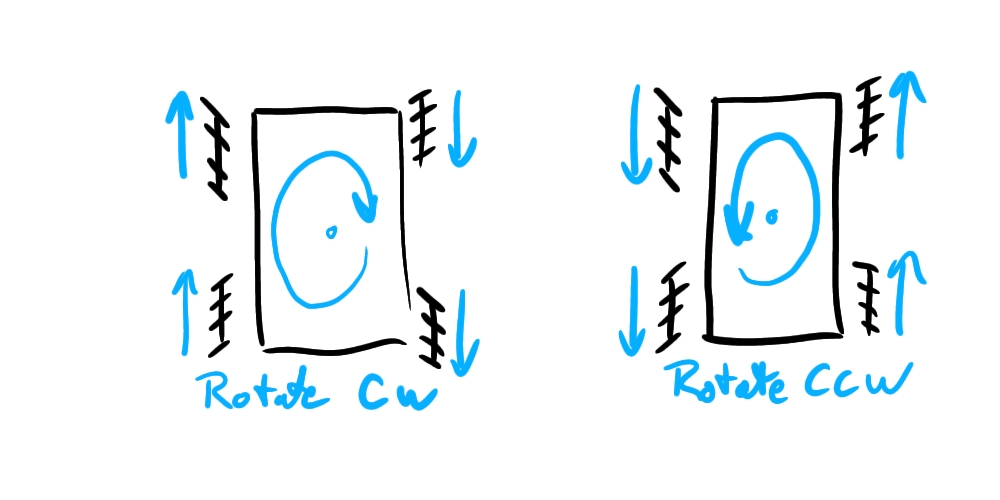 Rotate CW
Rotate CCW